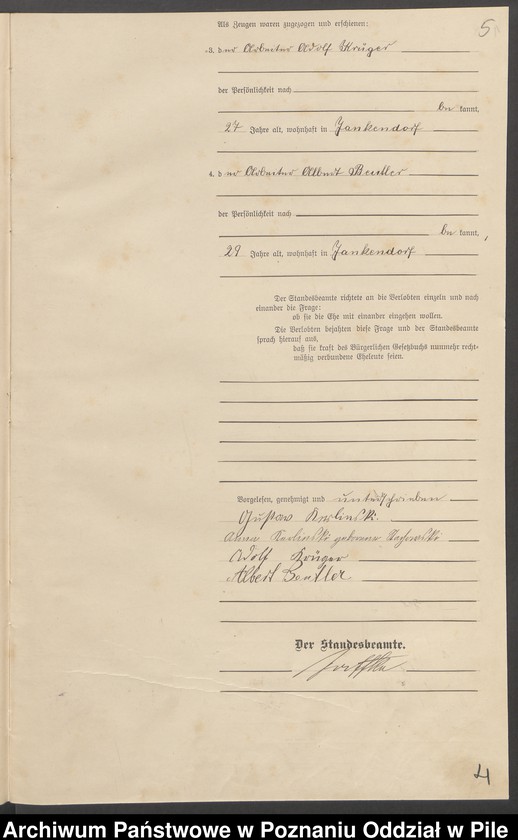 5
Als Zeugen waren zugezogen und erschienen:
3. der Arbeiter Adolf Krüger
der Persönlichkeit nach
bekannt,
27 Jahre alt, wohnhaft in Jankendorf
4. der Arbeiter Albert Beutler
der Persönlichkeit nach
bekannt,
29 Jahre alt, wohnhaft in Jankendorf
Der Standesbeamte richtete an die Verlobten einzeln und nach
einander die Frage:
ob sie die Ehe mit einander eingehen wollen.
Die Verlobten bejahten diese Frage und der Standesbeamte
sprach hierauf aus,
daß sie kraft des Bürgerlichen Gesetzbuchs nunmehr recht-
mäßig verbundene Eheleute seien.
Vorgelesen, genehmigt und unterschrieben
Gustav Kerlinski
Kerlinski geborene
Adolf Krüger
Albert Beutler
Der Standesbeamte.
4
Archiwum Państwowe w Poznaniu Oddział w Pile